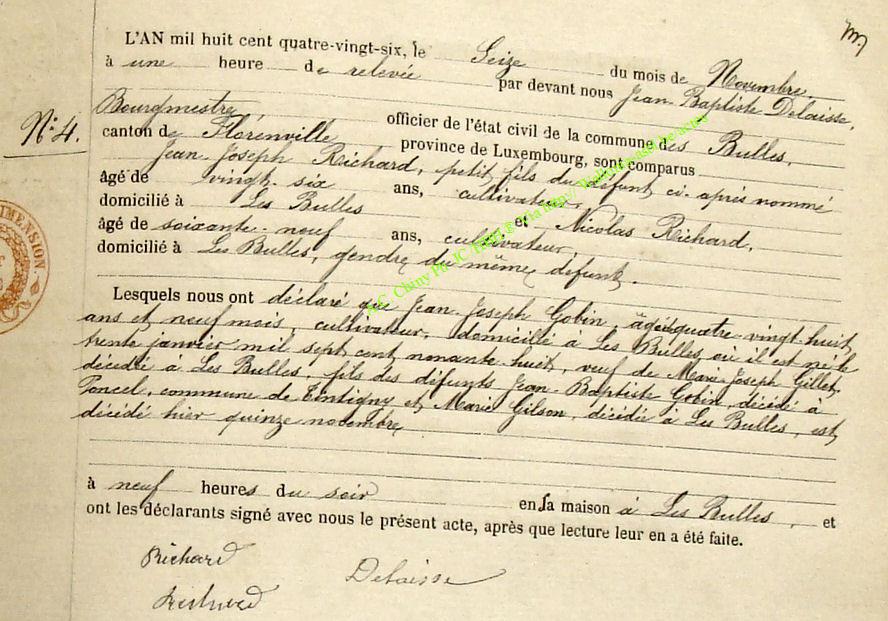 L'AN mil huit cent quatre-vingt-six, le Seize du mois de Novembre,
à une heure de relevée par devant nous Jean Baptiste Delaisse,
Bourgmestre officier de l'état civil de la commune des Bulles,
N: 4.
canton de Florenville province de Luxembourg, sont comparus
Jean-Joseph Richard, petit fils du défunt ci-après nommé
âgé de vingt-six ans, cultivateur,
domicilié à Les Bulles et Nicolas Richard,
âgé de soixante-neuf ans, cultivateur,
domicilié à Les Bulles, gendre du même défunt.
Lesquels nous ont déclaré que Jean-Joseph Gobin, âgé quatre-vingt-huit
ans et neuf mois, cultivateur, domicilié à Les Bulles, où il est né le
trente janvier mil sept cent nonante-huit, veuf de Marie-Joseph Gillet,
décédée à Les Bulles, fils des défunts Jean-Baptiste Gobin, décédé à
Poncel, commune de Tintigny et Marie Gilson, décédée à Les Bulles, est
décédé hier quinze novembre
à neuf heures du soir en sa maison à Les Bulles, et
ont les déclarants signé avec nous le présent acte, après que lecture leur en a été faite.
Richard
Delaisse
Richard
DIMENSION